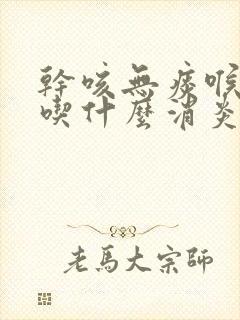 幹咳無痰喉
喫什麼消炎
老馬大宗師